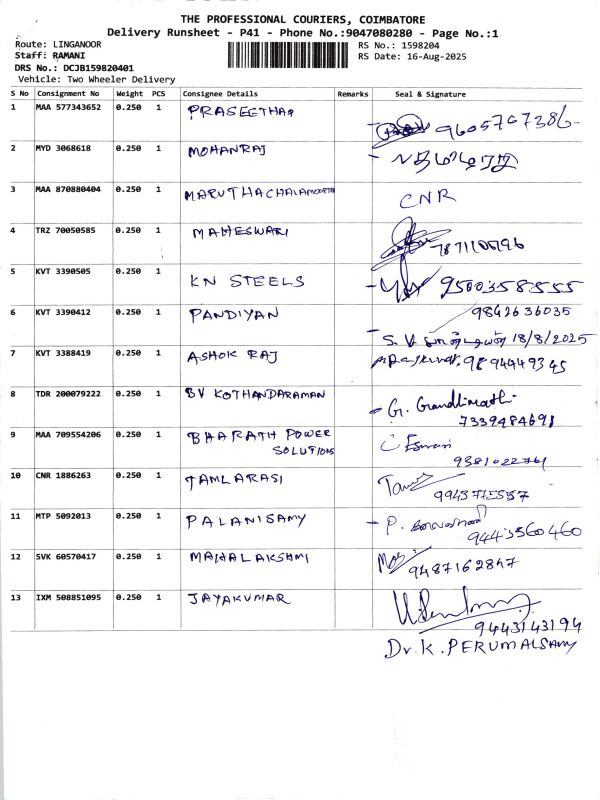 THE PROFESSIONAL COURIERS, COIMBATORE
Delivery Runsheet - P41 - Phone No.:9047080280 - Page No.:1
Route: LINGANOOR
Staff: RAMANI
DRS No.: DCJB159820401
Vehicle: Two Wheeler Delivery
RS No.: 1598204
RS Date: 16-Aug-2025
S No Consignment No Weight PCS Consignee Details Remarks Seal & Signature
1 MAA 577343652 0.250 1 PRASEETHA
9605707386
2 MYD 3068618 0.250 1 MOHANRAJ
3 MAA 870880404 0.250 1 MARUTHACHALAMOORTHI CNR
4 TRZ 70050585 0.250 1 MAHESWARI
5 KVT 3390505 0.250 1 KN STEELS 9500358555
6 KVT 3390412 0.250 1 PANDIYAN 9842636035
S. V. பாண்டியன் 18/8/2025
7 KVT 3388419 0.250 1 ASHOK RAJ 9894449345
8 TDR 200079222 0.250 1 BV KOTHANDARAMAN
G. Grandhimathi
7339484691
9 MAA 709554206 0.250 1 BHARATH POWER
SOLUTIONS
C Eswari
9381022761
10 CNR 1886263 0.250 1 TAMLARASI
11 MTP 5092013 0.250 1 PALANISAMY P.
9443560460
12 SVK 60570417 0.250 1 MAHALAKSHMI
9487162847
13 IXM 508851095 0.250 1 JAYAKUMAR
9443143194
Dr. K. PERUMALSAMY